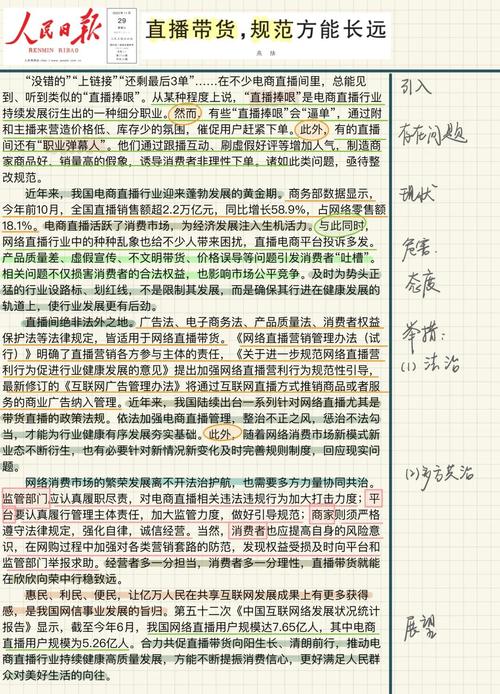 人民日报
RENMIN RIBAO
29
直播带货,规范方能长远
“没错的”“上链接”“还剩最后3单”……在不少电商直播间里，总能见
到、听到类似的“直播捧哏”。从某种程度上说，“直播捧哏”是电商直播行业
持续发展衍生出的一种细分职业。然而，有些“直播捧哏”会“逼单”，通过附
和主播来营造价格低、库存少的氛围，催促用户赶紧下单。此外，有的直播
间还有“职业弹幕人”。他们通过跟播互动、刷虚假好评等增加人气，制造商
家商品好、销量高的假象，诱导消费者非理性下单。诸如此类问题，亟待整
改规范。
近年来，我国电商直播行业迎来蓬勃发展的黄金期。商务部数据显示，
今年前10月，全国直播销售额超2.2万亿元，同比增长58.9%，占网络零售额
18.1%。电商直播活跃了消费市场，为经济发展注入生机活力。与此同时，
网络直播行业中的种种乱象也给不少人带来困扰，直播电商平台投诉多发。
产品质量差、虚假宣传、不文明带货、价格误导等问题引发消费者“吐槽”。
相关问题不仅损害消费者的合法权益，也影响市场公平竞争。及时为势头正
猛的行业设路标、划红线，不是限制其发展，而是确保其行进在健康发展的
轨道上，使行业发展更有后劲。
直播间绝非法外之地。广告法、电子商务法、产品质量法、消费者权益
保护法等法律规定，皆适用于网络直播带货。《网络直播营销管理办法（试
行）》明确了直播营销各方参与主体的责任，《关于进一步规范网络直播营
利行为促进行业健康发展的意见》提出加强网络直播营利行为规范性引导，
最新修订的《互联网广告管理办法》将通过互联网直播方式推销商品或者服
务的商业广告纳入管理。近年来，我国陆续出台一系列针对网络直播尤其是
带货直播的政策法规。依法加强电商直播管理，整治不正之风，惩治不法勾
当，才能为行业健康有序发展夯实基础。此外，随着网络消费市场新模式新
业态不断衍生，也有必要针对新情况新变化及时完善规则制度，回应现实问
题。
网络消费市场的繁荣发展离不开法治护航，也需要多方力量协同共治。
监管部门应认真履职尽责，对电商直播相关违法违规行为加大打击力度；平
台要认真履行管理主体责任，加大监管力度，做好引导规范；商家则须严格
遵守法律规定，强化自律，诚信经营。当然，消费者也应提高自身的风险意
识，在网购过程中加强对各类营销套路的防范，发现权益受损及时向平台和
监管部门举报求助。经营者多一分担当，消费者多一分理性，直播带货就能
在欣欣向荣中行稳致远。
惠民、利民、便民，让亿万人民在共享互联网发展成果上有更多获得
感，是我国网信事业发展的旨归。第五十二次《中国互联网络发展状况统计
报告》显示，截至今年6月，我国网络直播用户规模达7.65亿人，其中电商
直播用户规模为5.26亿人。合力共促直播带货向阳生长、清朗前行，推动电
商直播行业持续健康高质量发展，方能不断提振消费信心，更好满足人民群
众对美好生活的向往。
引入
存在问题
现状
危害:
态度
举措:
(1) 法治
(2)多方共治
展望